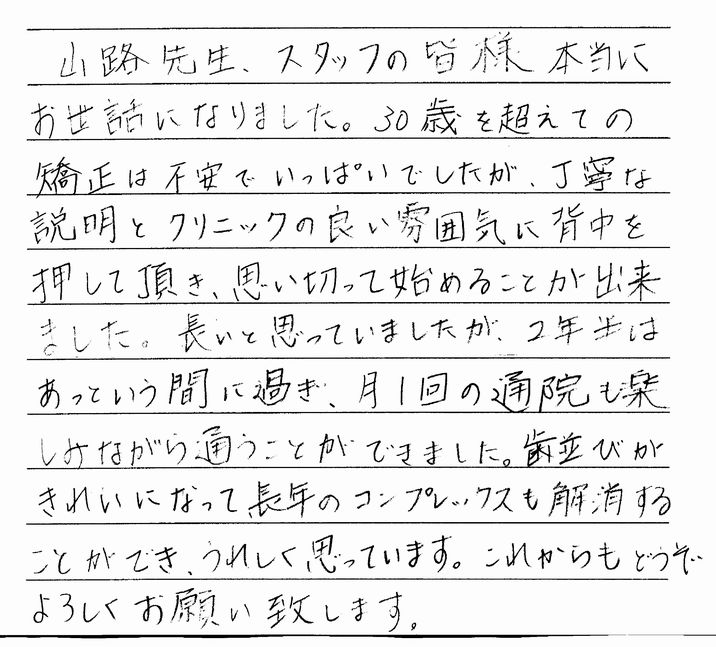 山路先生、スタッフの皆様本当に
お世話になりました。30歳を超えての
矯正は不安でいっぱいでしたが、丁寧な
説明とクリニックの良い雰囲気に背中を
押して頂き、思い切って始めることが出来
ました。長いと思っていましたが、2年半は
あっという間に過ぎ、月1回の通院も楽
しみながら通うことができました。歯並びが
きれいになって長年のコンプレックスも解消する
ことができ、うれしく思っています。これからもどうぞ
よろしくお願い致します。